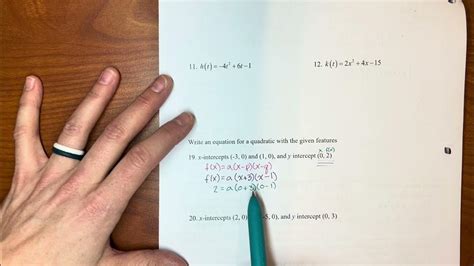 11. h(t) = -4t² + 6t - 1
12. k(t) = 2x² + 4x - 15
Write an equation for a quadratic with the given features
x f(x)
19. x-intercepts (-3, 0) and (1, 0), and y intercept (0, 2)
f(x) = a(x-p)(x-q)
f(x) = a (x+3)(x-1)
2 = a (0+3)(0-1)
20. x-intercepts (2, 0) -5, 0), and y intercept (0, 3)